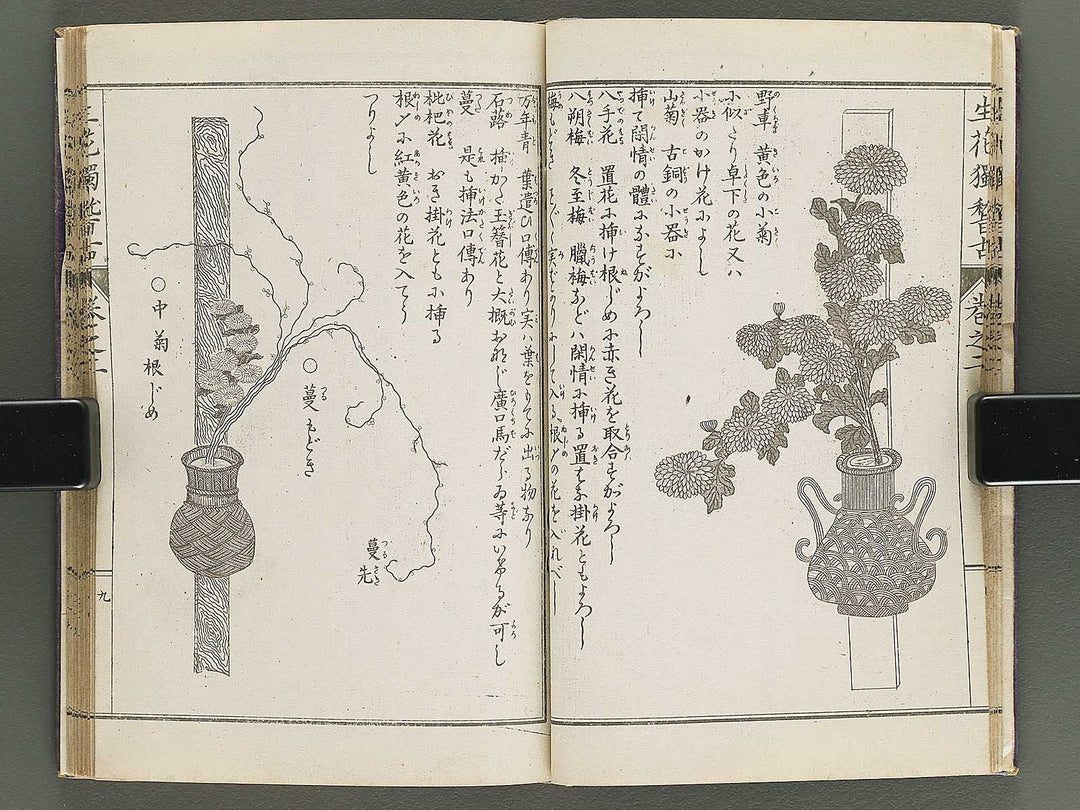 生花獨稽古 巻之二
野車 黄色の小菊
に似たり卓下の花又ハ
小器のかけ花によし
山菊 古銅の小器に
挿て閑情の體になすがよろし
八手花 置花に挿け根じめに赤き花を取合すがよろし
八朔梅 冬至梅 臘梅などハ閑情に挿る置すゑ掛花ともよろし
梅もどき 実 にして入る根〆の花を入れべし
万年青 葉遣ひ口傳あり実ハ葉を 出る物あり
石蕗 挿かた玉簪花と大概おなじ廣口馬だらゐ等にいけるが可し
蔓 是も挿法口傳あり
枇杷花 おき掛花ともに挿る
根〆に紅黄色の花を入てう
つりよし
○蔓もどき
蔓先
○中菊根じめ
生花獨稽古 巻之二
九